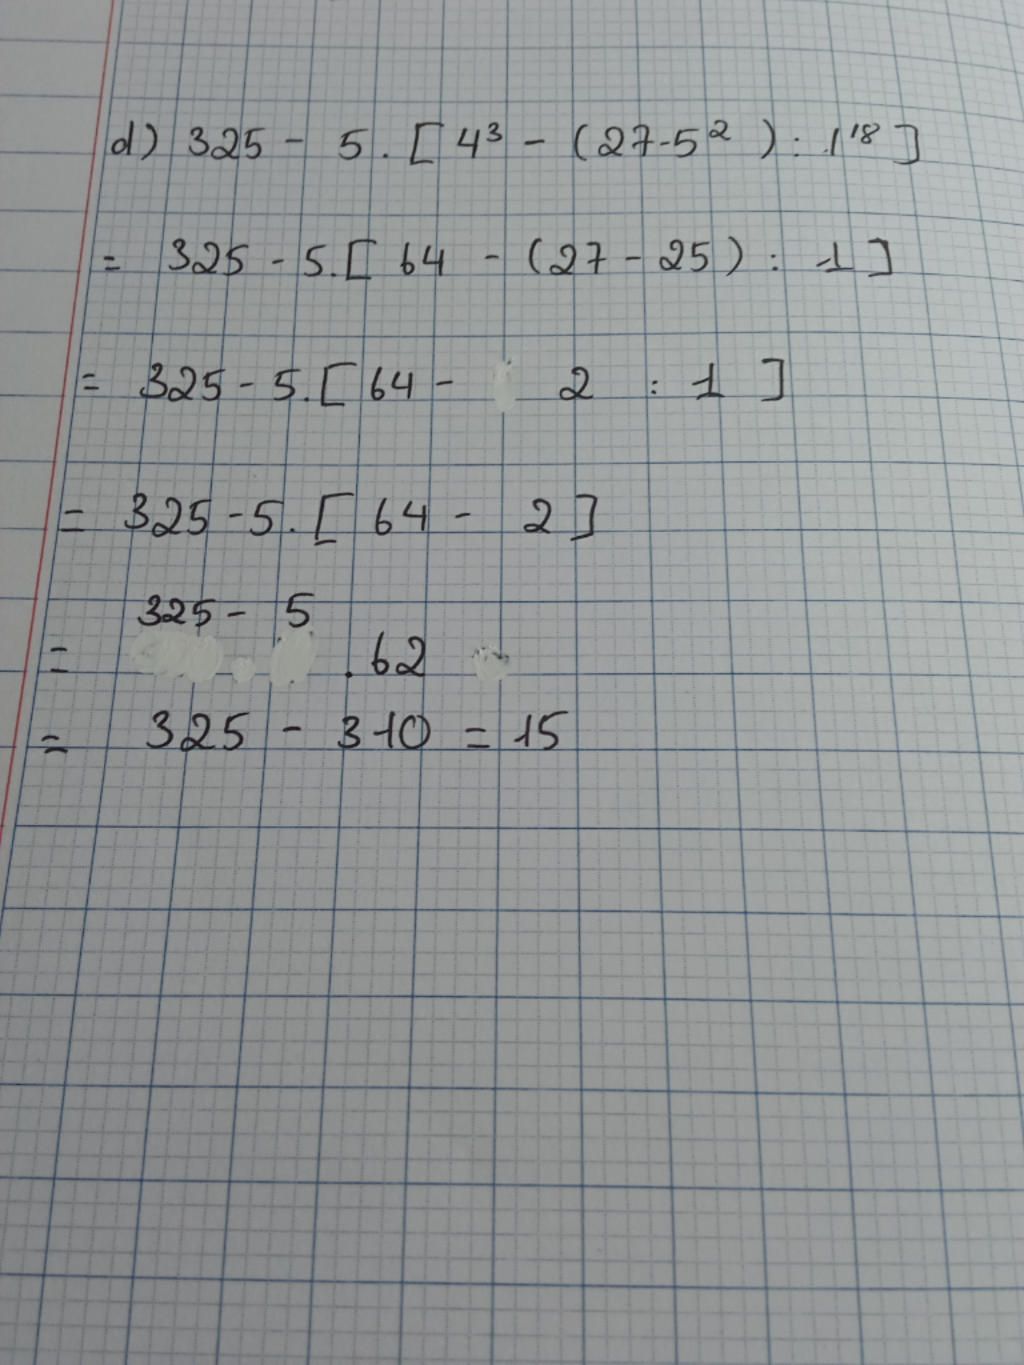 d) 325 - 5 . [ 4³ - (27-5² ) : 1¹⁸ ]
= 325 - 5.[ 64 - (27 - 25) : 1 ]
= 325 - 5.[ 64 - 2 : 1 ]
= 325 - 5. [ 64 - 2 ]
325 - 5
= . 62
= 325 - 310 = 15